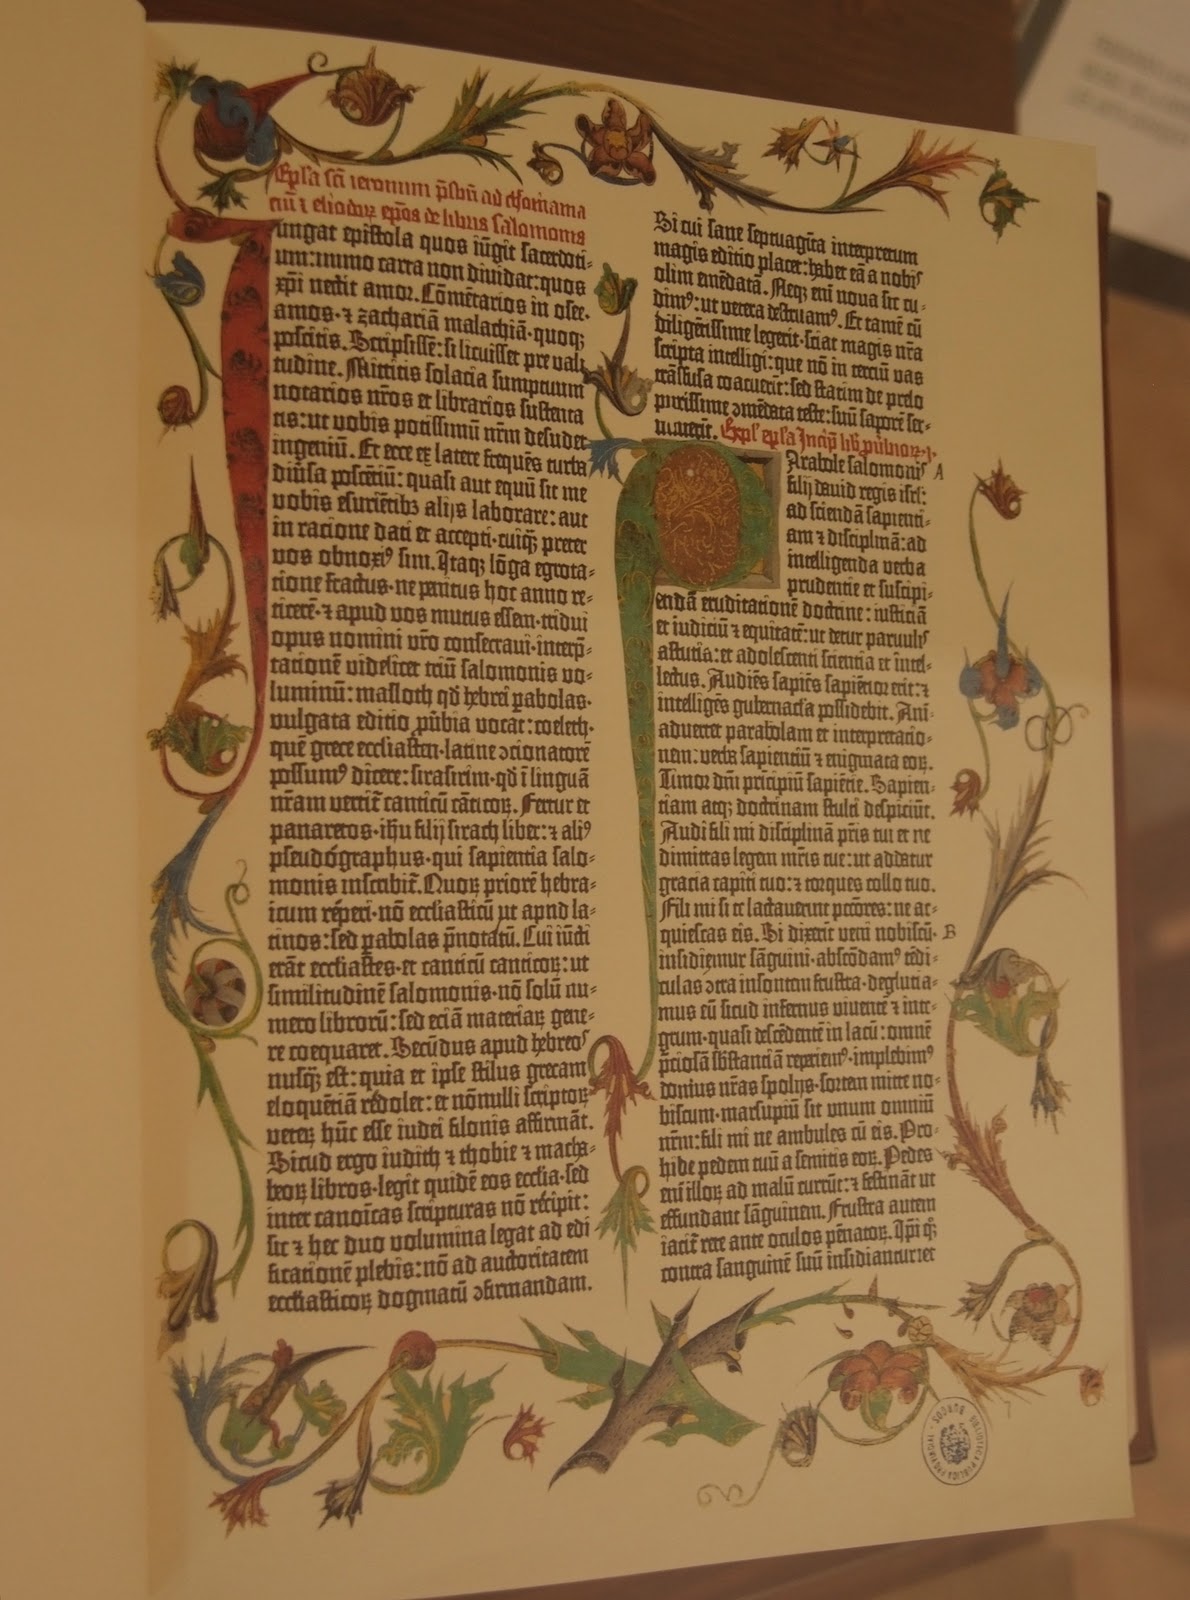 Epistola sancti ieronimi p̄sbit̄i ad chromacium
ciū ⁊ eliodoꝝ ep̄os de libris salomonis
Iungat epistola quos iūgit sacerdoti-
um: immo carta non diuidat: quos
xp̄i nectit amor. Cōmētarios in osee.
amos. ⁊ zachariā malachiā. quoqꝫ
poscitis. Scripsissē: si licuisset pre vali-
tudine. Mittitis solacia sumptuum
notarios nr̄os et librarios sustenta-
tis: ut vobis potissimū nr̄m desudet
ingeniū. Et ecce ex latere frequēs turba
diūsa poscētiū: quasi aut equū sit me
vobis esuriētibꝫ alijs laborare: aut
in racione dati et accepti. cuiqꝫ preter
vos obnoxiꝰ sim. Itaqꝫ lōga egrota-
tione fractus. ne penitus hoc anno re-
ticerē. ⁊ apud vos mutus essem. tridui
opus nomini vr̄o consecraui. interp̄-
tationē videlicet triū salomonis vo-
luminū: masloth qd̄ hebrei ꝑabolas.
vulgata editio ꝓūbia vocat: coeleth.
quē grece ecclesiasten. latine ɔcionatorē
possumꝰ dicere: sirasirim. qd̄ ī linguā
nr̄am vertit̄ canticū cāticoꝝ. Fertur et
panaretos. ihū filij sirach liber: ⁊ aliꝰ
pseudographus. qui sapientia salo-
monis inscribit̄. Quoꝝ priorē hebra-
icum repperi. nō ecclesiasticū ut apud la-
tinos: sed ꝑabolas p̄notatū. Cui iūcti
erāt ecclesiastes. et canticū canticoꝝ: ut
similitudinē salomonis. nō solū nu-
mero librorū: sed eciā materiaꝝ gene-
re coequaret. Secūdus apud hebreos
nusqꝫ est: quia et ipse stilus grecam
eloquētiā redolet: et nōnulli scriptoꝝ
veterꝫ hūc esse iudei filonis affirmāt.
Sicud ergo iudith ⁊ thobie ⁊ macha-
beoꝝ libros. legit quidē eos ecclesia. sed
inter canoīcas scripturas nō recipit:
sic ⁊ hec duo volumina legat ad edi-
ficationē plebis: nō ad auctoritatem
ecclesiasticoꝝ dogmatū ɔfirmandam.
Si cui sane septuagīta interpretum
magis editio placet: habet eā a nobis
olim emēdatā. Neqꝫ enī noua sic cu-
dimꝰ: ut vetera destruamꝰ. Et tamē cū
diligētissime legerit. sciat magis nr̄a
scripta intelligi: que nō in terciū vas
trāsfusa coacuerīt: sed statim de prelo
purissime ɔmēdata teste: suū saporē ser-
uauerīt. Expl' epl'a Incip̄ lib' ꝓūbiorꝫ.
Parabole salomonis A
filij dauid regis isrl':
ad sciendā sapienti-
am ⁊ disciplinā: ad
intelligenda verba
prudentie et suscipi-
endā eruditationē doctrine: iusticiā
et iudiciū ⁊ equitatē: ut detur paruulis
astutia: et adolescenti scientia et intel-
lectus. Audiēs sapiēs sapiētior erit: ⁊
intelligēs gubernacl'a possidebit. Ani-
aduertet parabolam et interpretacio-
nem: verba sapientiū ⁊ enigmata eoꝝ.
Timor dn̄i prīcipiū sapiētie. Sapien-
tiam atqꝫ doctrinam stulti despiciūt.
Audi fili mi disciplinā pr̄is tui et ne
dimittas legem mr̄is tue: ut addatur
gracia capiti tuo: ⁊ torques collo tuo.
Fili mi si te lactauerint pctōres: ne ac-
quiescas eis. Si dixerīt veni nobiscū. B
insidiemur sāguini. abscōdamꝰ tēdi-
culas ɔtra insontem frustra. deglucia-
mus eū sicud infernus viuentē ⁊ inte-
grum. quasi descēdentē in lacū: omnē
p̄ciosā sb̄stanciā reperiemꝰ. implebimꝰ
domus nr̄as spolijs. sortem mitte no-
biscum. marsupiū sit vnum omniū
nr̄m: fili mi ne ambules cū eis. Pro-
hibe pedem tuū a semitis eoꝝ. Pedes
enī illoꝝ ad malū currūt: ⁊ festināt ut
effundant sāguinem. Frustra autem
iacit̄ rete ante oculos pēnatoꝝ. Ip̄i qꝫ
contra sanguinē suū insidiantur: et
BIBLIOTECA PUBLICA PROVINCIAL · BURGOS